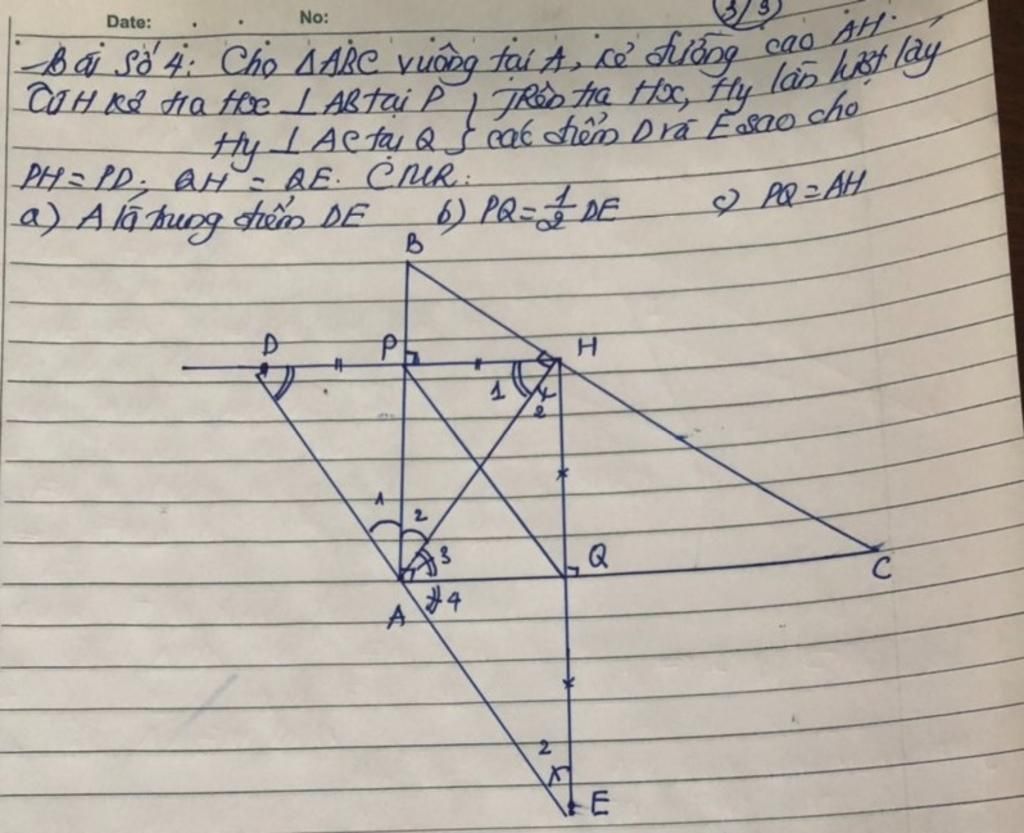 Date: . . No:
3/3
Bài số 4: Cho ΔABC vuông tại A, kẻ đường cao AH.
Từ H kẻ tia Hx ⊥ AB tại P } Trên tia Hx, Hy lần lượt lấy
Hy ⊥ AC tại Q } các điểm D và E sao cho
PH = PD; QH = QE. CMR:
a) A là trung điểm DE b) PQ = 1/2 DE c) PQ = AH
B
D P H
1 2
1 2
3 Q
C
A 4
2
E